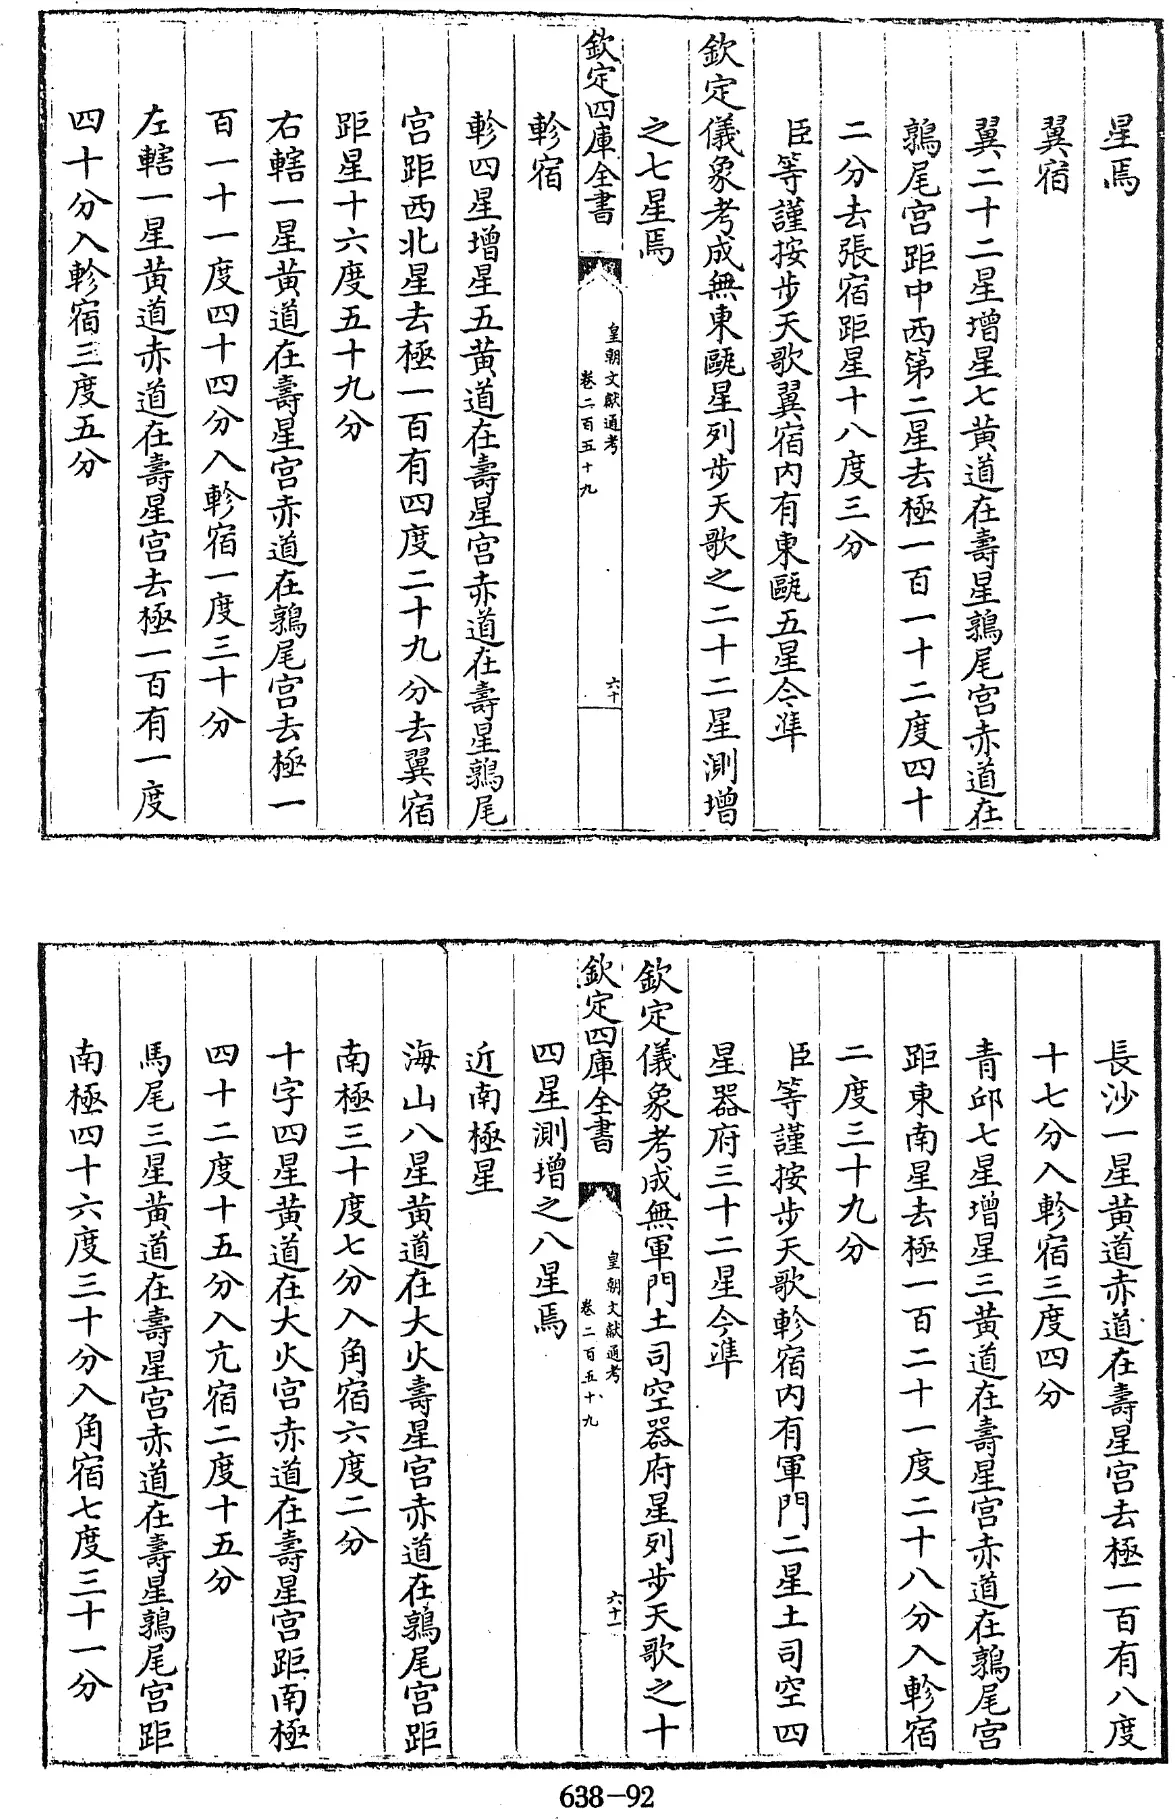 星焉
翼宿
翼二十二星增星七黄道在壽星鶉尾宮赤道在
鶉尾宮距中西第二星去極一百一十二度四十
二分去張宿距星十八度三分
臣等謹按步天歌翼宿内有東甌五星今準
欽定儀象考成無東甌星列步天歌之二十二星測增
之七星焉
欽定四庫全書
皇朝文獻通考
卷二百五十九
六十
軫宿
軫四星增星五黄道在壽星宮赤道在壽星鶉尾
宮距西北星去極一百有四度二十九分去翼宿
距星十六度五十九分
右轄一星黄道在壽星宮赤道在鶉尾宮去極一
百一十一度四十四分入軫宿一度三十分
左轄一星黄道赤道在壽星宮去極一百有一度
四十分入軫宿三度五分
長沙一星黄道赤道在壽星宮去極一百有八度
十七分入軫宿三度四分
青邱七星增星三黄道在壽星宮赤道在鶉尾宮
距東南星去極一百二十一度二十八分入軫宿
二度三十九分
臣等謹按步天歌軫宿内有軍門二星土司空四
星器府三十二星今準
欽定儀象考成無軍門土司空器府星列步天歌之十
欽定四庫全書
皇朝文獻通考
卷二百五十九
六十一
四星測增之八星焉
近南極星
海山八星黄道在大火壽星宮赤道在鶉尾宮距
南極三十度七分入角宿六度二分
十字四星黄道在大火宮赤道在壽星宮距南極
四十二度十五分入亢宿二度十五分
馬尾三星黄道在壽星宮赤道在壽星鶉尾宮距
南極四十六度三十分入角宿七度三十一分
638-92